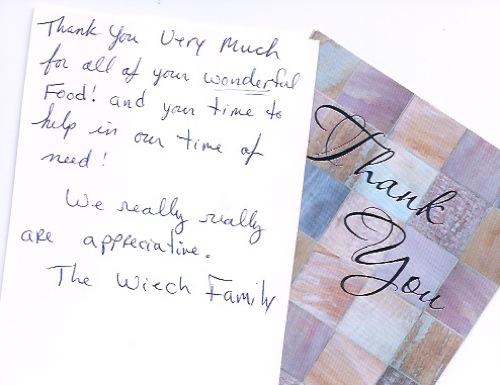 Thank You Very Much
for all of your wonderful
Food! and your time to
help in our time of
need!
We really really
are appreciative.
The Wiech Family
Thank
You